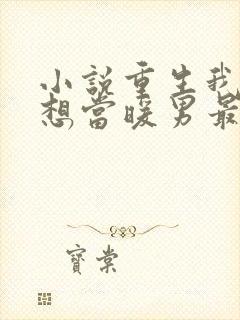 小説重生我
想當暖男最
寶棠